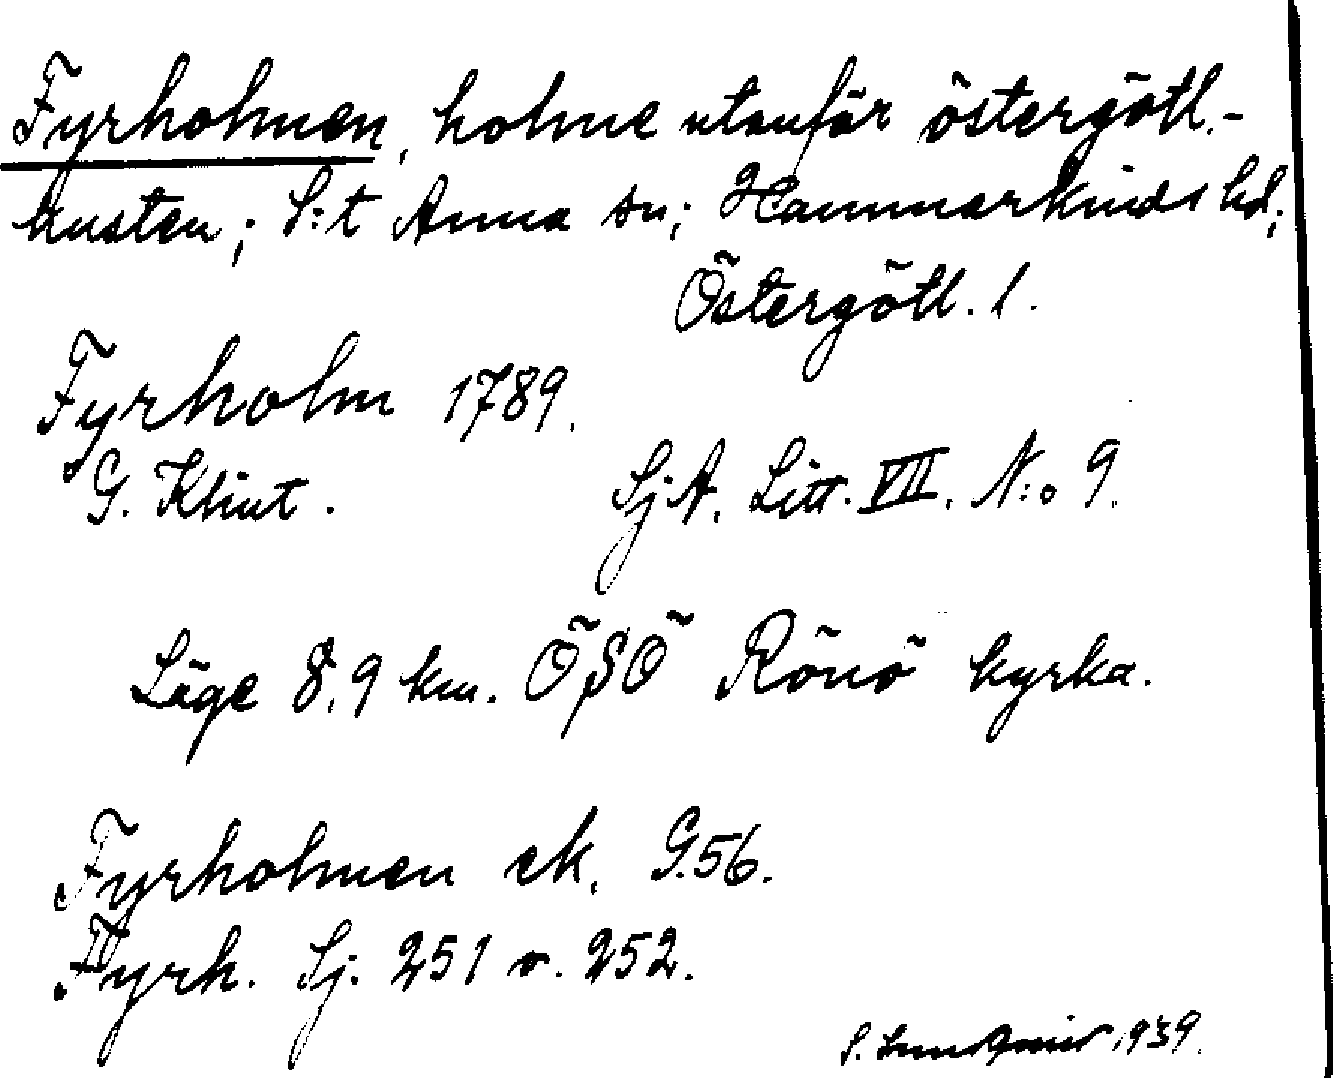 Fyrholmen, holme utanför östergötl.-
kusten; S:t Anna sn; Hammarkinds hd;
Östergötl. l.
Fyrholm 1789.
G. Klint. SjA. Litt. VII. N:o 9.
Läge 8,9 km. ÖSÖ Rönö kyrka.
Fyrholmen ek. G.56.
Fyrh. Sj. 251 o. 252.
S. Lundqvist 1939.